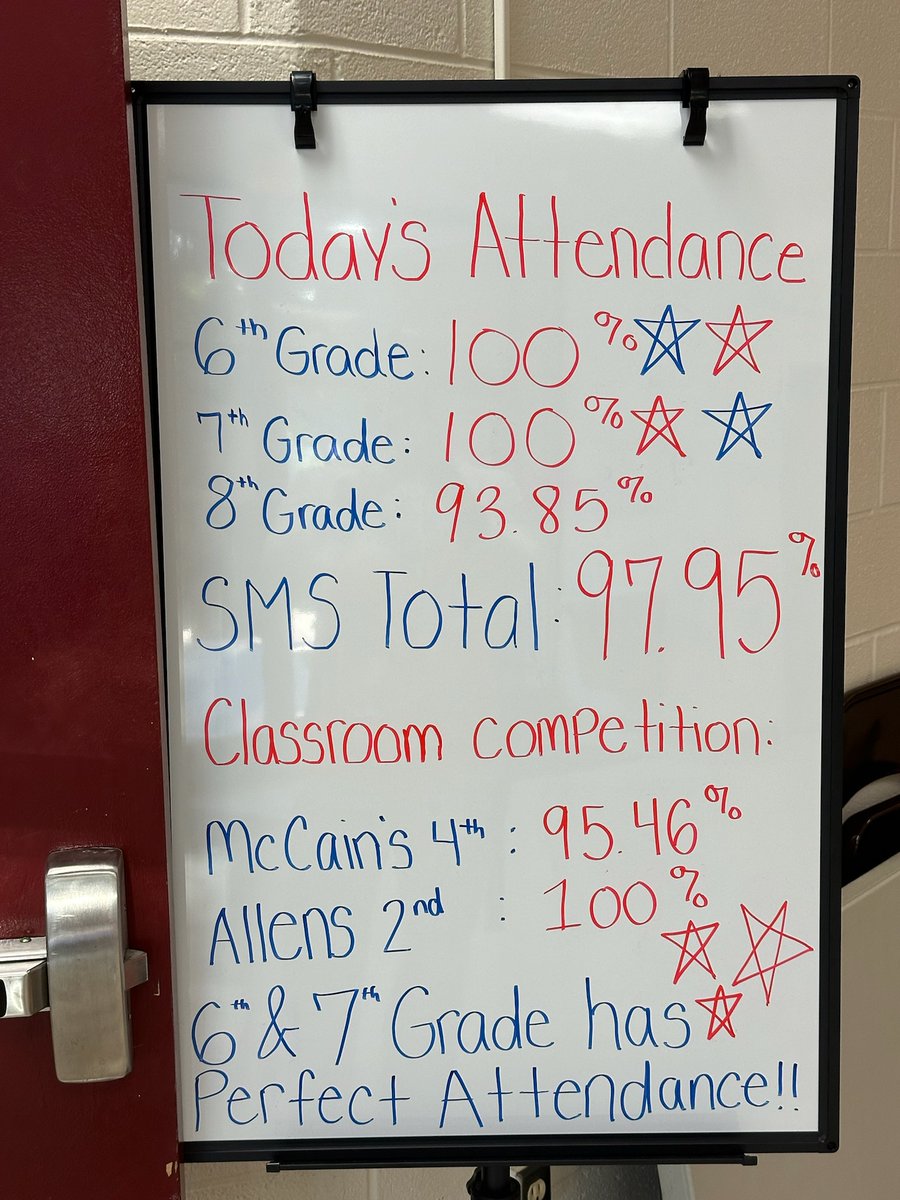 Today's Attendance
6th Grade: 100%
7th Grade: 100%
8th Grade: 93.85%
SMS Total: 97.95%
Classroom competition:
McCain's 4th : 95.46%
Allens 2nd : 100%
6th & 7th Grade has
Perfect Attendance!!